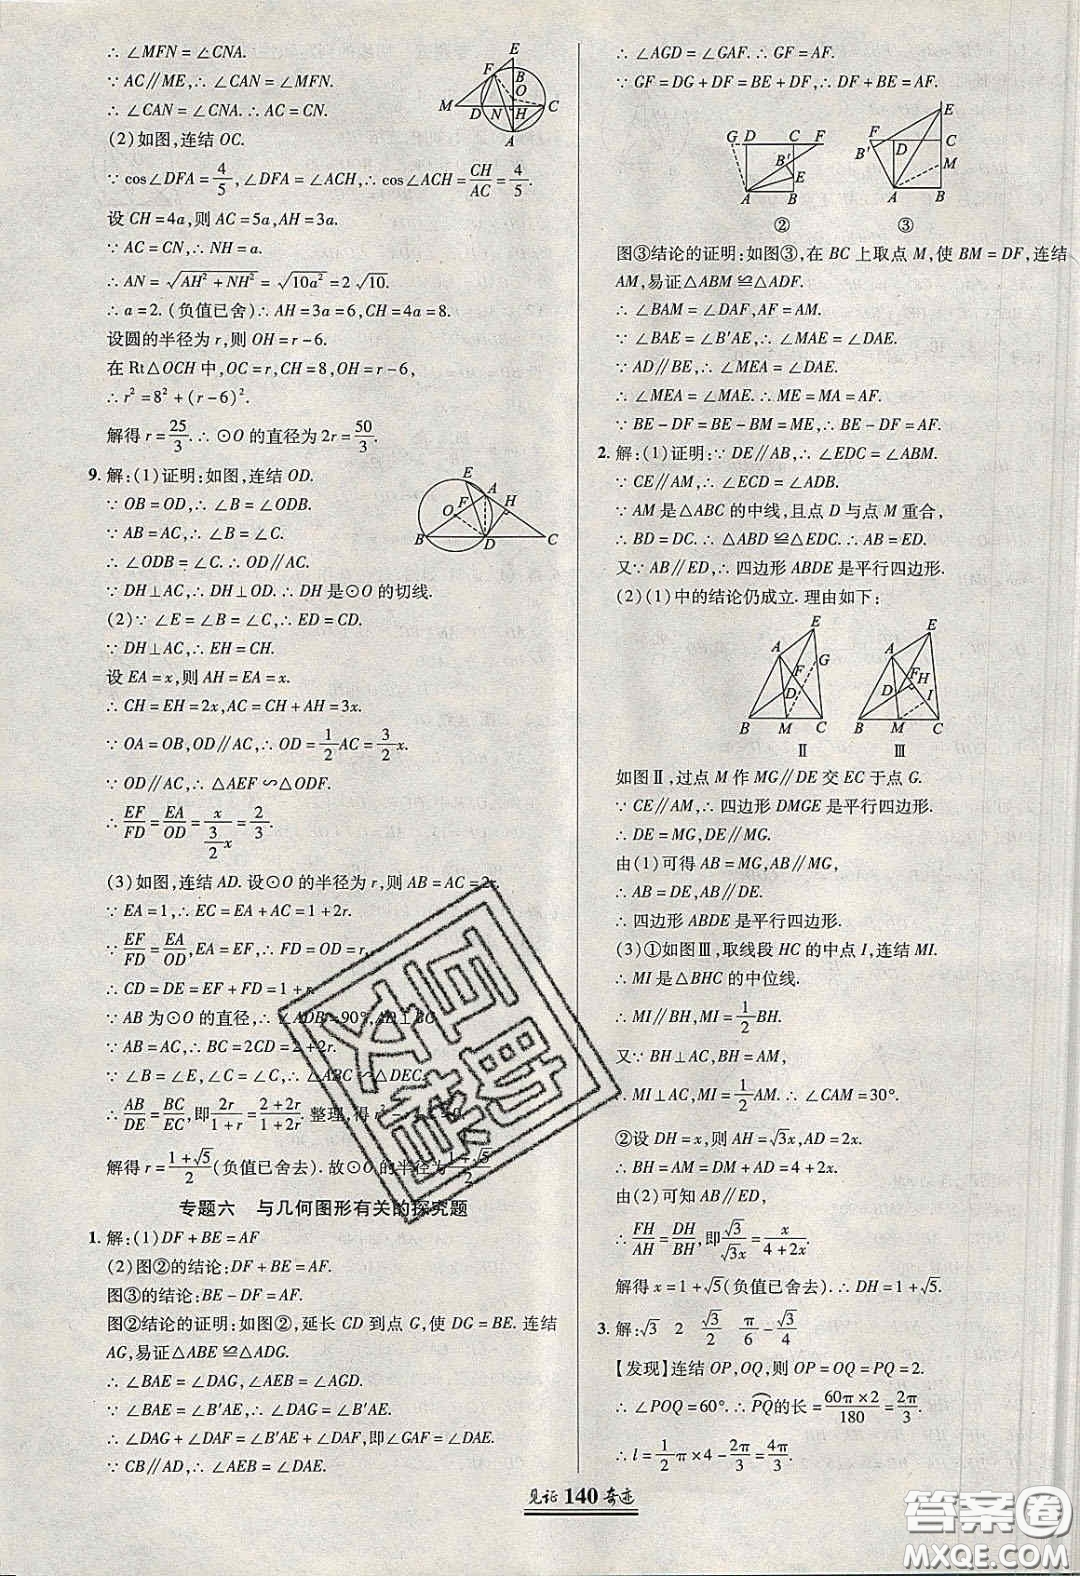 ∴ ∠MFN = ∠CNA.
∵ AC∥ME,∴ ∠CAN = ∠MFN.
∴ ∠CAN = ∠CNA. ∴ AC = CN.
(2)如图,连结 OC.
∵ cos∠DFA = 4/5, ∠DFA = ∠ACH,∴ cos∠ACH = CH/AC = 4/5.
设 CH = 4a,则 AC = 5a,AH = 3a.
∵ AC = CN,∴ NH = a.
∴ AN = √(AH² + NH²) = √(10a²) = 2√10.
∴ a = 2. (负值已舍)∴ AH = 3a = 6,CH = 4a = 8.
设圆的半径为 r,则 OH = r - 6.
在 Rt△OCH 中,OC = r,CH = 8,OH = r - 6,
∴ r² = 8² + (r - 6)².
解得 r = 25/3. ∴ ⊙O 的直径为 2r = 50/3.
E F B O M D N H C A
9. 解:(1)证明:如图,连结 OD.
∵ OB = OD,∴ ∠B = ∠ODB.
∵ AB = AC,∴ ∠B = ∠C.
∴ ∠ODB = ∠C. ∴ OD∥AC.
∵ DH⊥AC,∴ DH⊥OD. ∴ DH 是⊙O 的切线.
(2)∵ ∠E = ∠B = ∠C,∴ ED = CD.
∵ DH⊥AC,∴ EH = CH.
设 EA = x,则 AH = EA = x.
∴ CH = EH = 2x,AC = CH + AH = 3x.
∵ OA = OB,OD∥AC,∴ OD = 1/2 AC = 3/2 x.
∵ OD∥AC,∴ △AEF∽△ODF.
∴ EF/FD = EA/OD = x/(3/2 x) = 2/3.
(3)如图,连结 AD. 设⊙O 的半径为 r,则 AB = AC = 2r.
∵ EA = 1,∴ EC = EA + AC = 1 + 2r.
∵ EF/FD = EA/OD, EA = EF,∴ FD = OD = r.
∴ CD = DE = EF + FD = 1 + r.
∵ AB 为⊙O 的直径,∴ ∠ADB = 90°,AD⊥BC.
∵ AB = AC,∴ BC = 2CD = 2 + 2r.
∵ ∠B = ∠E,∠C = ∠C,∴ △ABC∽△DEC.
∴ AB/DE = BC/EC,即 2r/(1 + r) = (2 + 2r)/(1 + 2r). 整理,得
解得 r = (1 + √5)/2 (负值已舍去). 故⊙O 的半径为 (1 + √5)/2
E A F H O B D C
专题六 与几何图形有关的探究题
1. 解:(1)DF + BE = AF
(2)图②的结论:DF + BE = AF.
图③的结论:BE - DF = AF.
图②结论的证明:如图②,延长 CD 到点 G,使 DG = BE. 连结
AG,易证△ABE≌△ADG.
∴ ∠BAE = ∠DAG,∠AEB = ∠AGD.
∵ ∠BAE = ∠B′AE,∴ ∠DAG = ∠B′AE.
∴ ∠DAG + ∠DAF = ∠B′AE + ∠DAF,即∠GAF = ∠DAE.
∵ CB∥AD,∴ ∠AEB = ∠DAE.
∴ ∠AGD = ∠GAF. ∴ GF = AF.
∵ GF = DG + DF = BE + DF,∴ DF + BE = AF.
G D C F B′ E A B
②
E F D C B′ M A B
③
图③结论的证明:如图③,在 BC 上取点 M,使 BM = DF,连结
AM,易证△ABM≌△ADF.
∴ ∠BAM = ∠DAF,AF = AM.
∵ ∠BAE = ∠B′AE,∴ ∠MAE = ∠DAE.
∵ AD∥BE,∴ ∠MEA = ∠DAE.
∴ ∠MEA = ∠MAE. ∴ ME = MA = AF.
∵ BE - DF = BE - BM = ME,∴ BE - DF = AF.
2. 解:(1)证明:∵ DE∥AB,∴ ∠EDC = ∠ABM.
∵ CE∥AM,∴ ∠ECD = ∠ADB.
∵ AM 是△ABC 的中线,且点 D 与点 M 重合,
∴ BD = DC. ∴ △ABD≌△EDC. ∴ AB = ED.
又∵ AB∥ED,∴ 四边形 ABDE 是平行四边形.
(2)(1)中的结论仍成立. 理由如下:
E A F G D B M C
Ⅱ
E A F H D I B M C
Ⅲ
如图Ⅱ,过点 M 作 MG∥DE 交 EC 于点 G.
∵ CE∥AM,∴ 四边形 DMGE 是平行四边形.
∴ DE = MG,DE∥MG.
由(1)可得 AB = MG,AB∥MG,
∴ AB = DE,AB∥DE.
∴ 四边形 ABDE 是平行四边形.
(3)①如图Ⅲ,取线段 HC 的中点 I,连结 MI.
∴ MI 是△BHC 的中位线.
∴ MI∥BH,MI = 1/2 BH.
又∵ BH⊥AC,BH = AM,
∴ MI⊥AC,MI = 1/2 AM. ∴ ∠CAM = 30°.
②设 DH = x,则 AH = √3x,AD = 2x.
∴ BH = AM = DM + AD = 4 + 2x.
由(2)可知,四边形 ABDE 是平行四边形,∴ DF∥AB.
∴ FH/AH = DH/BH,即 √3/(√3x) = x/(4 + 2x).
解得 x = 1 + √5(负值已舍去). ∴ DH = 1 + √5.
3. 解:√3 2 √3/2 π/6 - √3/4
【发现】连结 OP,OQ,则 OP = OQ = PQ = 2.
∴ ∠POQ = 60°. ∴ PQ的长 = (60π × 2)/180 = 2π/3.
∴ l = 1/2 π × 4 - 2π/3 = 4π/3.
见证 140 奇迹
答案圈
MXQE.COM